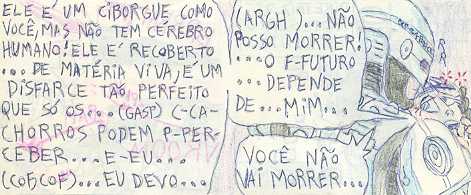 ELE É UM CIBORGUE COMO
VOCÊ, MAS NÃO TEM CEREBRO
HUMANO! ELE É RECOBERTO
...DE MATÉRIA VIVA, É UM
DISFARCE TÃO PERFEITO
QUE SÓ OS... (GASP) C-CA-
CHORROS PODEM P-PER-
CEBER... E-EU...
(COF, COF)... EU DEVO...
(ARGH)... NÃO
POSSO MORRER!
...O F-FUTURO
...DEPENDE
DE...MIM...
VOCÊ NÃO
VAI MORRER...